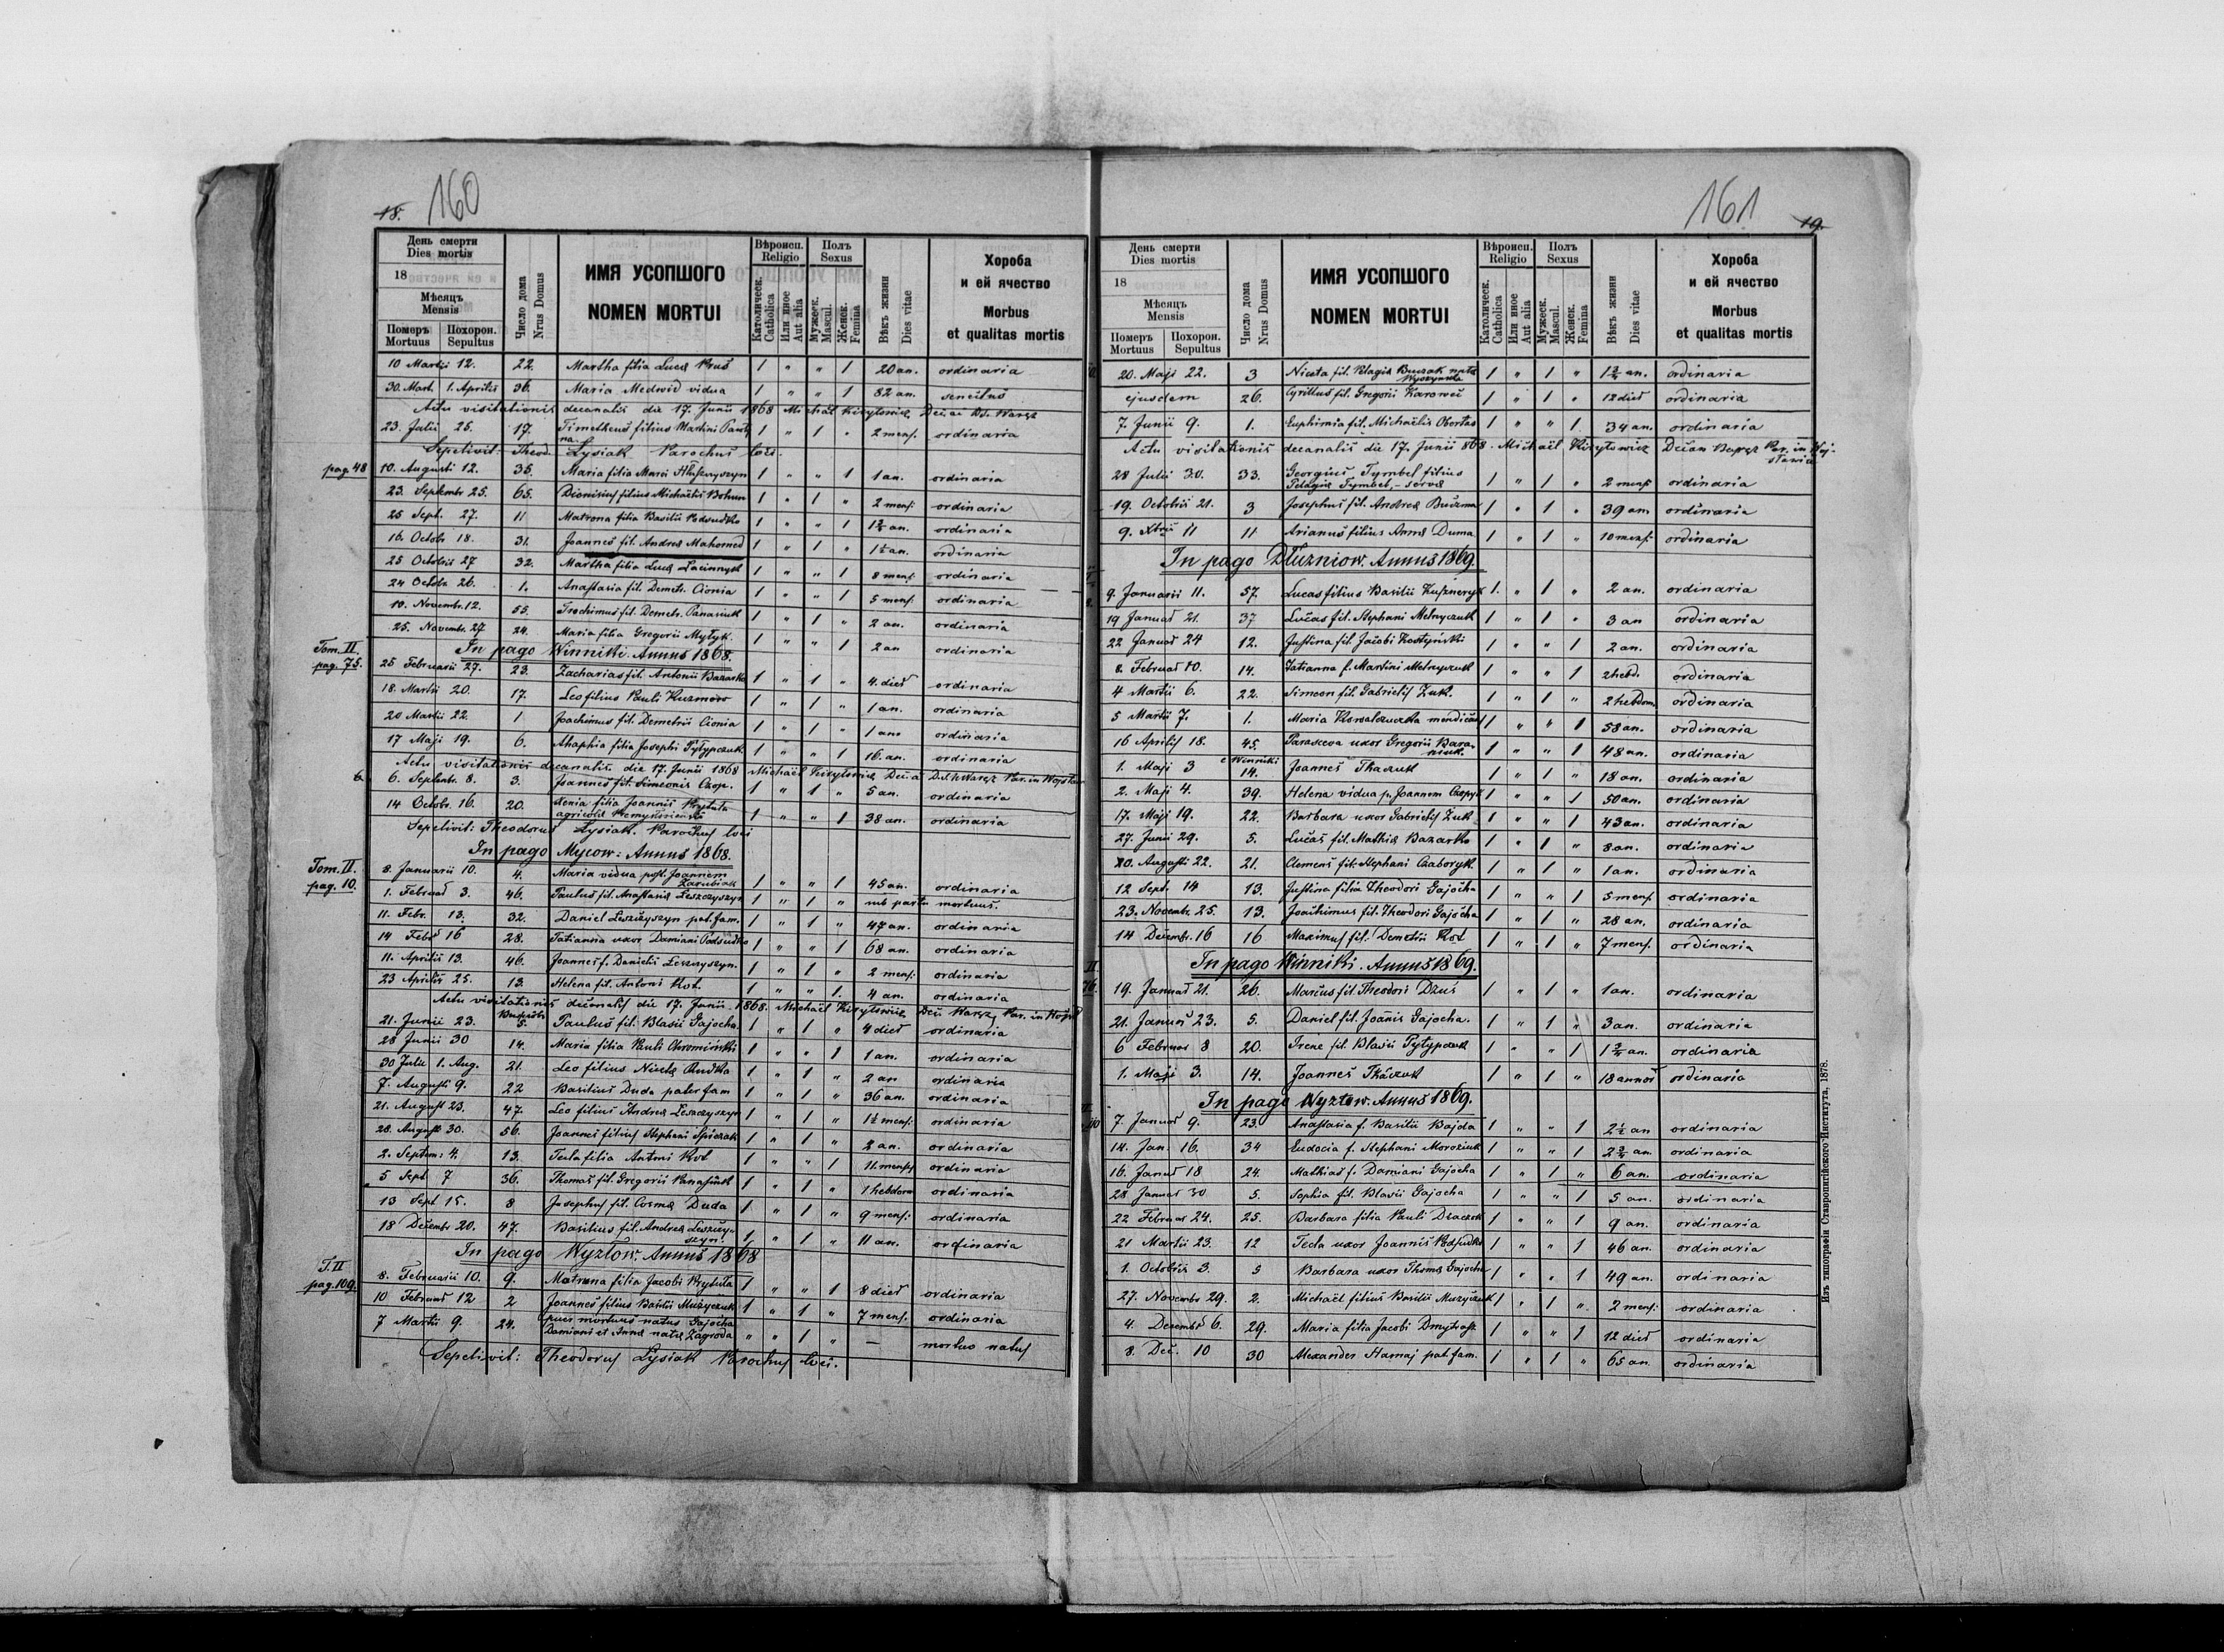 18. 160
День смерти
Dies mortis
18
Мѣсяцъ
Mensis
Померъ Похорон.
Mortuus Sepultus
Число дома
Nrus Domus
ИМЯ УСОПШОГО
NOMEN MORTUI
Вѣроисп.
Religio
Католическ.
Catholica
Или иное
Aut alia
Полъ
Sexus
Мужеск.
Mascul.
Женск.
Femina
Вѣкъ жизни
Dies vitae
Хороба
и ей ячество
Morbus
et qualitas mortis
10 Martii 12. 22. Martha filia Lucæ Kruś 1 " " 1 20 an. ordinaria
30. Mart. 1. Aprilis 36. Maria Medwid vidua 1 " " 1 82 an. senectus
Actu visitationis decanalis die 17. Junii 1868 Michaël Kirytowicz
23. Julii 25. 17. Timotheus filius Martini 1 " 1 " 2 mens. ordinaria
Sepelivit: Theod. Lysiak Parochus loci.
pag. 48 10. Augusti 12. 35. Maria filia Marci 1 " " 1 1 an. ordinaria
23. Septembr 25. 65. Dionisius filius Michaëlis Bohun 1 " 1 " 2 mens. ordinaria
25 Sept. 27. 11 Matrona filia Basilii Podsudko 1 " " 1 an. ordinaria
16. Octobr. 18. 31. Joannes fil. Andreæ Mahomed 1 " 1 " 1½ an. ordinaria
25 Octobris 27 32. Martha filia Lucæ 1 " " 1 8 mens. ordinaria
24 Octob. 26. 1. Anastasia fil. Demetr. Cionia 1 " " 1 5 mens. ordinaria
10. Novembr. 12. 55. Trochimus fil. Demetr. Panasiuk 1 " 1 " 2 an. ordinaria
25. Novembr. 27 24. Maria filia Gregorii Mytyk. 1 " " 1 2 an ordinaria
Tom. II. In pago Winniki. Annus 1868.
pag. 75. 25 Februarii 27. 23. Zacharias fil. Antonii Bazarko 1 " 1 " 4. dies ordinaria
18. Martii 20. 17. Leo filius Pauli Kuzmow 1 " 1 " 1 an. ordinaria
20 Martii 22. 1 Joachimus fil. Demetrii Cionia 1 " 1 " 1 ordinaria
17 Maji 19. 6. Ahaphia filia Josephi Pytypczuk 1 " " 1 16. an. ordinaria
Actu visitationis decanalis die 17. Junii 1868 Michaël Kirytowicz
6. Septembr. 8. 3. Joannes fil. Simeonis Czop. 1 " 1 " 5 an. ordinaria
14 Octobr. 16. 20. Xenia filia Joannis Prytuła
agricolæ 1 " " 1 38 an. ordinaria
Sepelivit: Theodorus Lysiak Parochus loci
In pago Mycow: Annus 1868.
Tom. II.
pag. 10. 8. Januarii 10. 4. Maria vidua post Joannem
Zarubiak 1 " " 1 45 an. ordinaria
1. Februar 3. 46. Paulus fil. Anastasiæ Leszczyszyn 1 " 1 " sub partu mortuus.
11. Febr. 13. 32. Daniel Leszczyszyn pat. fam. 1 " 1 " 47 an. ordinaria
14 Febr 16 28. Tatianna uxor Damiani Podsudko 1 " " 1 68 an. ordinaria
11. Aprilis 13. 46. Joannes f. Danielis Leszczyszyn. 1 " 1 " 2 mens. ordinaria
23 Aprilis 25. 13. Helena fil. Antoni Kot. 1 " " 1. 4 an. ordinaria
Actu visitationis decanalis die 17. Junii 1868. Michaël Kirytowicz
21. Junii 23. 5. Paulus fil. Blasii Gajocha. 1 " 1 " 4 dies ordinaria
28 Junii 30 14. Maria filia Pauli Chromiński 1 " " 1 1 an. ordinaria
30 Julii 1. Aug. 21 Leo filius Nicetæ Rudka 1 " 1 " 2 an ordinaria
7. Augusti 9. 22 Basilius Duda pater fam 1 " 1 " 36 an. ordinaria
21. August 23. 47. Leo filius Andreæ Leszczyszyn 1 " 1 " 1½ mens. ordinaria
28. August 30. 56. Joannes filius Stephani Spiczak 1 " 1 " 2 an. ordinaria
2. Septem: 4. 13. Tecla filia Antoni Kot 1 " " 1 11. mens. ordinaria
5 Sept. 7 36. Thomas fil. Gregorii Panasiuk 1 " 1 " 1 hebdom ordinaria
13 Sept. 15. 8 Josephus fil. Cosmæ Duda 1 " 1 " 9 mens: ordinaria
18 Decembr 20. 47. Basilius fil. Andreæ Leszczy-
szyn. 1 " 1 " 11 an. ordinaria
In pago Wyżlow. Annus 1868
T. II
pag. 109. 8. Februarii 10. 9. Matrona filia Jacobi Prytuła 1 " " 1 8 dies ordinaria
10 Februar 12 2 Joannes filius Basilii Muzyczuk 1 " 1 " 7 mens. ordinaria
7 Martii 9. 24. puer mortuus natus Gajocha
Damiani et Annæ natæ Zagroda " " 1 " — mortuo natus
Sepelivit: Theodorus Lysiak Parochus loci.
161 19.
День смерти
Dies mortis
18
Мѣсяцъ
Mensis
Померъ Похорон.
Mortuus Sepultus
Число дома
Nrus Domus
ИМЯ УСОПШОГО
NOMEN MORTUI
Вѣроисп.
Religio
Католическ.
Catholica
Или иное
Aut alia
Полъ
Sexus
Мужеск.
Mascul.
Женск.
Femina
Вѣкъ жизни
Dies vitae
Хороба
и ей ячество
Morbus
et qualitas mortis
20. Maji 22. 3 Niceta fil. Pelagiæ 1 " 1 " an. ordinaria
ejusdem 26. Cyrillus fil. Gregorii Karowci 1 " 1 " 12 dies ordinaria
7. Junii 9. 1. Euphimia fil. Michaëlis Obortas 1 " " 1. 34 an. ordinaria
Actu visitationis decanalis die 17. Junii 868. Michaël Kirytowicz
28 Julii 30. 33. Georgius Tymbel filius
Pelagiæ Tymbel, - servæ 1 " 1 " 2 mens. ordinaria
19. Octobris 21. 3 Josephus fil. Andreæ Buczma 1 " 1 " 39 an ordinaria
9. Xbris 11 11 Arianus filius Annæ Duma 1 " 1 " 10 mens. ordinaria
In pago Dłużniow. Annus 1869.
9. Januarii 11. 57. Lucas filius Basilii 1. " 1 " 2 an. ordinaria
19 Januar 21. 37 Lucas fil. Stephani Melnyczuk 1 " 1 " 3 an ordinaria
22 Januar 24 12. Justina fil. Jacobi Kostyński 1 " " 1 2 an. ordinaria
8. Februar 10. 14. Tatianna f. Martini Melnyczuk 1 " " 1 2 hebd. ordinaria
4 Martii 6. 22. Simeon fil. Gabrielis Żuk. 1 " 1 " 2 hebdom. ordinaria
5 Martii 7. 1. Maria Kowalczuczka 1 " " 1 58 an. ordinaria
16 Aprilis 18. 45. Parasceva uxor Gregorii Bara-
niuk. 1 " " 1 48 an. ordinaria
1. Maji 3 e Winniki
14. Joannes Tkaczuk 1 " 1 " 18 an. ordinaria
2. Maji 4. 39. Helena vidua p. Joannem 1 " " 1 50 an. ordinaria
17. Maji 19. 22. Barbara uxor Gabrielis Żuk. 1 " " 1 43 an. ordinaria
27. Junii 29. 5. Lucas fil. Mathiæ Bazarko 1 " 1 " 8 an. ordinaria
20. Augusti 22. 21. Clemens fil. Stephani Czaboryk. 1 " 1 " 1 an. ordinaria
12 Sept. 14 13. Justina filia Theodori Gajocha 1 " " 1 5 mens. ordinaria
23. Novembr. 25. 13. Joachimus fil. Theodori Gajocha 1 " 1 " 28 an. ordinaria
14 Decembr. 16 16 Maximus fil. Demetrii Kot 1 " 1 " 7 mens. ordinaria
In pago Winniki. Annus 1869.
19. Januar 21. 26. Marcus fil. Theodori Dzus 1 " 1 " 1 an. ordinaria
21. Januar 23. 5. Daniel fil. Joanis Gajocha. 1 " 1 " 3 an. ordinaria
6 Februar 8 20. Irene fil. Blasii Pytypczuk 1 " " 1 an. ordinaria
1. Maji 3. 14. Joannes Tkaczuk 1 " 1 " 18 annos ordinaria
In pago Wyżlow. Annus 1869.
7. Januar 9. 23. Anastasia f. Basilii Bajda 1 " " 1 2½ an ordinaria
14. Jan. 16. 34 Eudocia f. Stephani Moroziuk 1 " " 1 an. ordinaria
16. Januar 18 24. Mathias f. Damiani Gajocha 1 " 1 " 6 an. ordinaria
28 Januar 30 5. Sophia fil. Blasii Gajocha 1 " " 1 5 an. ordinaria
22 Februar 24. 25. Barbara filia Pauli Diaczok 1 " " 1 9 an. ordinaria
21 Martii 23. 12 Tecla uxor Joannis Podsudko 1 " " 1 46 an. ordinaria
1. Octobris 3. 5 Barbara uxor Thomæ Gajocha 1 " " 1 49 an. ordinaria
27. Novembr 29. 2. Michaël filius Basilii Muzyczuk 1 " 1 " 2 mens. ordinaria
4. Decembr 6. 29. Maria filia Jacobi Dmytrasz 1 " " 1 12 dies ordinaria
8. Dec. 10 30 Alexander Hamaj pat. fam. 1 " 1 " 65 an. ordinaria
Изъ типографіи Ставропигійского Института, 1878.